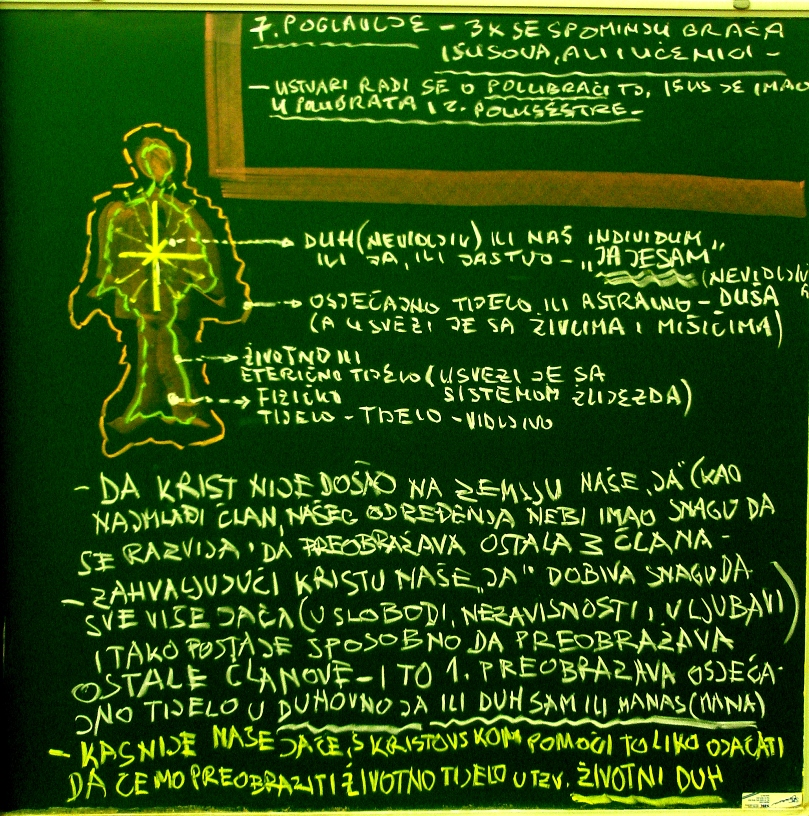 7. POGLAVLJE - 3X SE SPOMINJU BRAĆA
ISUSOVA, ALI I UČENICI -
- USTVARI RADI SE O POLUBRAĆI TJ, ISUS JE IMAO
4 POLUBRATA I 2. POLUSESTRE -
DUH (NEVIDLJIV) ILI NAŠ INDIVIDUM
ILI JA, ILI JASTVO - „JA JESAM"
(NEVIDLJIV
OSJEĆAJNO TIJELO ILI ASTRALNO - DUŠA
(A U SVEZI JE SA ŽIVCIMA I MIŠIĆIMA)
ŽIVOTNO ILI
ETERIČNO TIJELO (U SVEZI JE SA
SISTEMOM ŽLIJEZDA)
FIZIČKO
TIJELO - TIJELO - VIDLJIVO
- DA KRIST NIJE DOŠAO NA ZEMLJU NAŠE „JA" (KAO
NAJMLAĐI ČLAN, NAŠEG ODREĐENJA NEBI IMAO SNAGU DA
SE RAZVIJA I DA PREOBRAŽAVA OSTALA 3 ČLANA -
- ZAHVALJUJUĆI KRISTU NAŠE „JA" DOBIVA SNAGU DA
SVE VIŠE JAČA (U SLOBODI, NEZAVISNOSTI I U LJUBAVI)
I TAKO POSTAJE SPOSOBNO DA PREOBRAŽAVA
OSTALE ČLANOVE - I TO 1. PREOBRAŽAVA OSJEĆA-
JNO TIJELO U DUHOVNO JA ILI DUH SAM ILI MANAS (MANA)
- KASNIJE NAŠE JA ĆE, S KRISTOVSKOM POMOĆI TOLIKO OJAČATI
DA ĆEMO PREOBRAZITI ŽIVOTNO TIJELO U TZV. ŽIVOTNI DUH